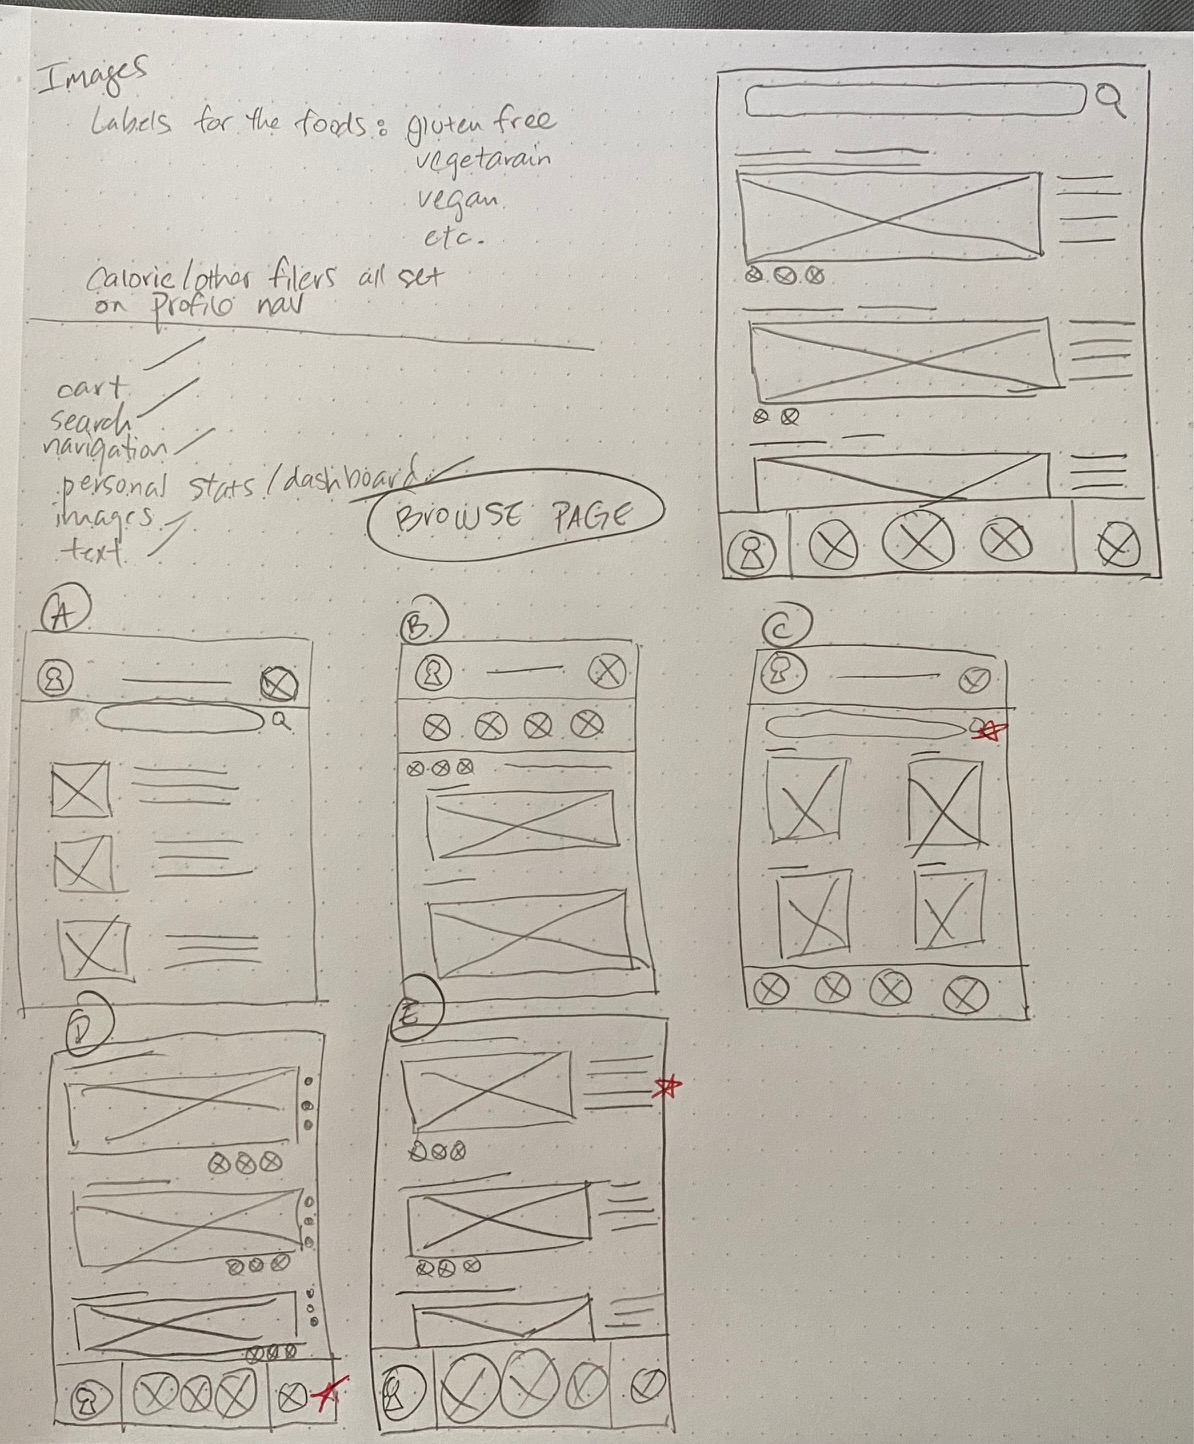 Images
Labels for the foods: gluten free
vegetarain
vegan
etc.
Calorie/other filers all set
on Profile nav
cart
search
navigation
personal stats/dashboard
images
text
BROWSE PAGE
A
B
C
D
E